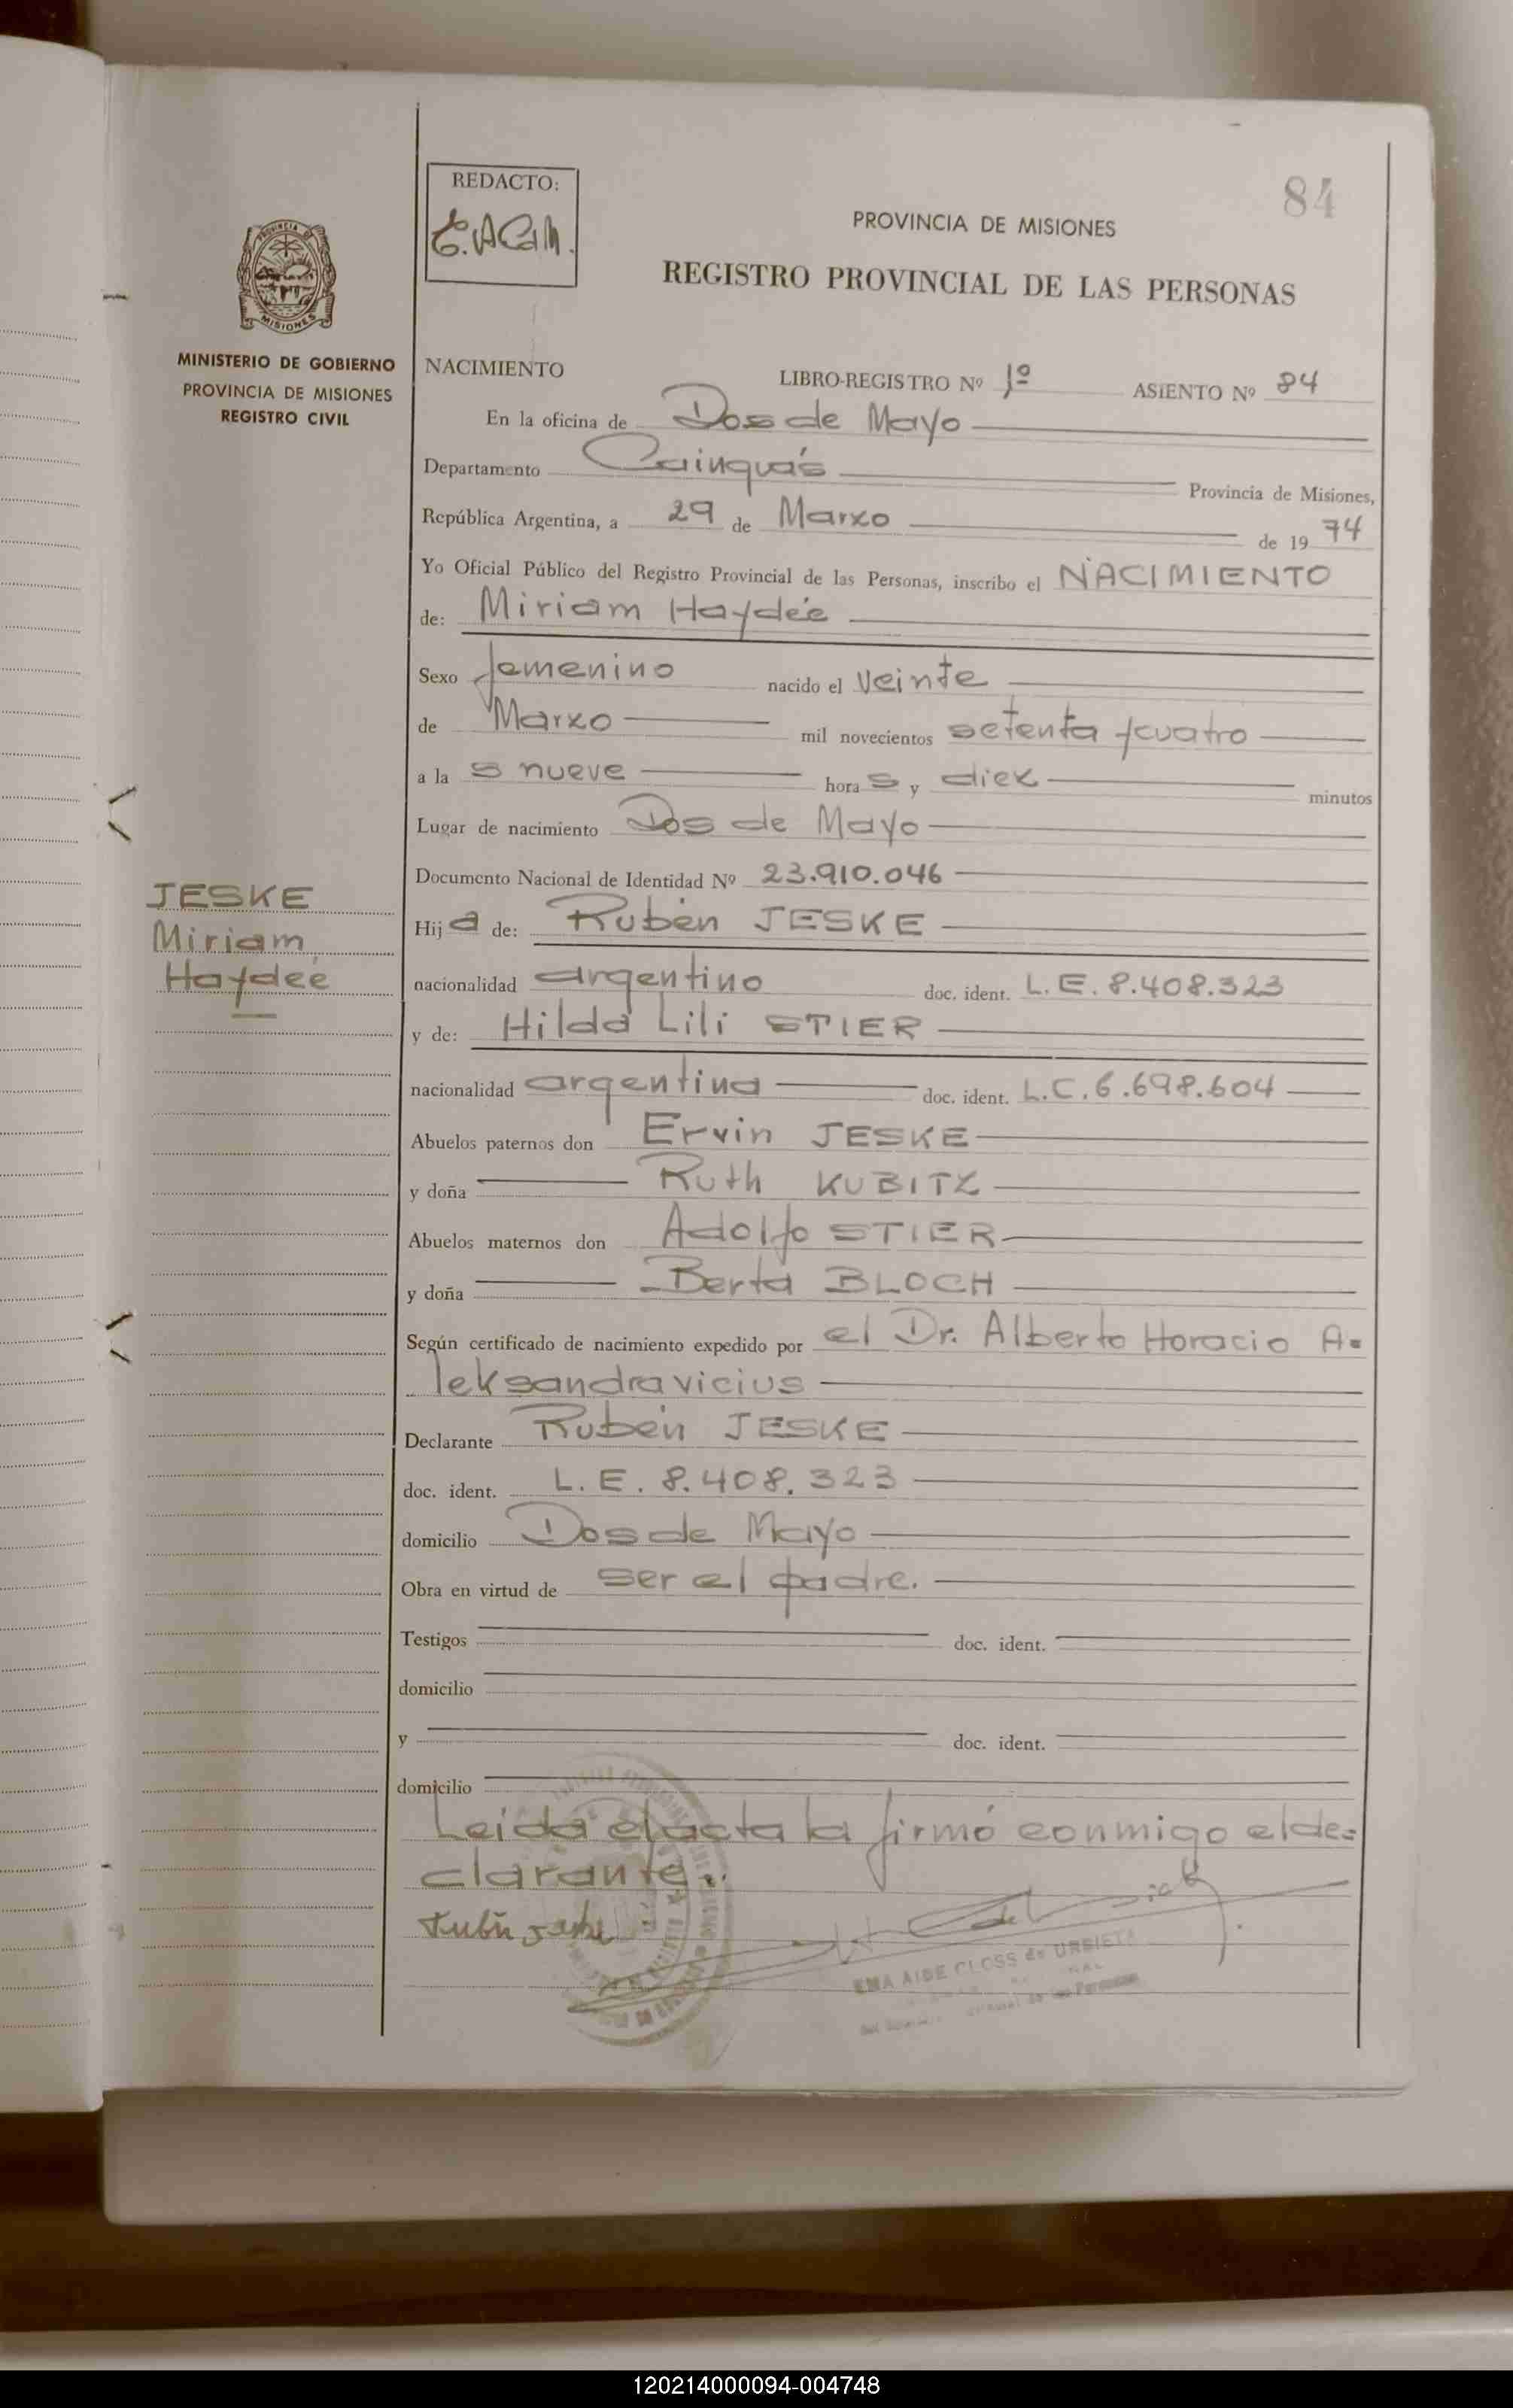 84
REDACTO:
PROVINCIA DE MISIONES
REGISTRO PROVINCIAL DE LAS PERSONAS
MISIONES
MINISTERIO DE GOBIERNO
PROVINCIA DE MISIONES
REGISTRO CIVIL
NACIMIENTO LIBRO-REGISTRO Nº 1º ASIENTO Nº 84
En la oficina de Dos de Mayo
Departamento Cainguás Provincia de Misiones,
República Argentina, a 29 de Marzo de 1974
Yo Oficial Público del Registro Provincial de las Personas, inscribo el NACIMIENTO
de: Miriam Haydée
Sexo femenino nacido el veinte
de Marzo mil novecientos setenta y cuatro
a las nueve horas y diez minutos
Lugar de nacimiento Dos de Mayo
Documento Nacional de Identidad Nº 23.910.046
JESKE
Miriam
Haydeé
Hija de: Rubén JESKE
nacionalidad argentino doc. ident. L.E. 8.408.323
y de: Hilda Lili STIER
nacionalidad argentina doc. ident. L.C. 6.698.604
Abuelos paternos don Ervin JESKE
y doña Ruth KUBITZ
Abuelos maternos don Adolfo STIER
y doña Berta BLOCH
Según certificado de nacimiento expedido por el Dr. Alberto Horacio A=
leksandravicius
Declarante Rubén JESKE
doc. ident. L.E. 8.408.323
domicilio Dos de Mayo
Obra en virtud de ser el padre.
Testigos doc. ident.
domicilio
y doc. ident.
domicilio
Leida el acta la firmó conmigo el de=
clarante.
EMA AIDE CLOSS de URBIETA
120214000094-004748